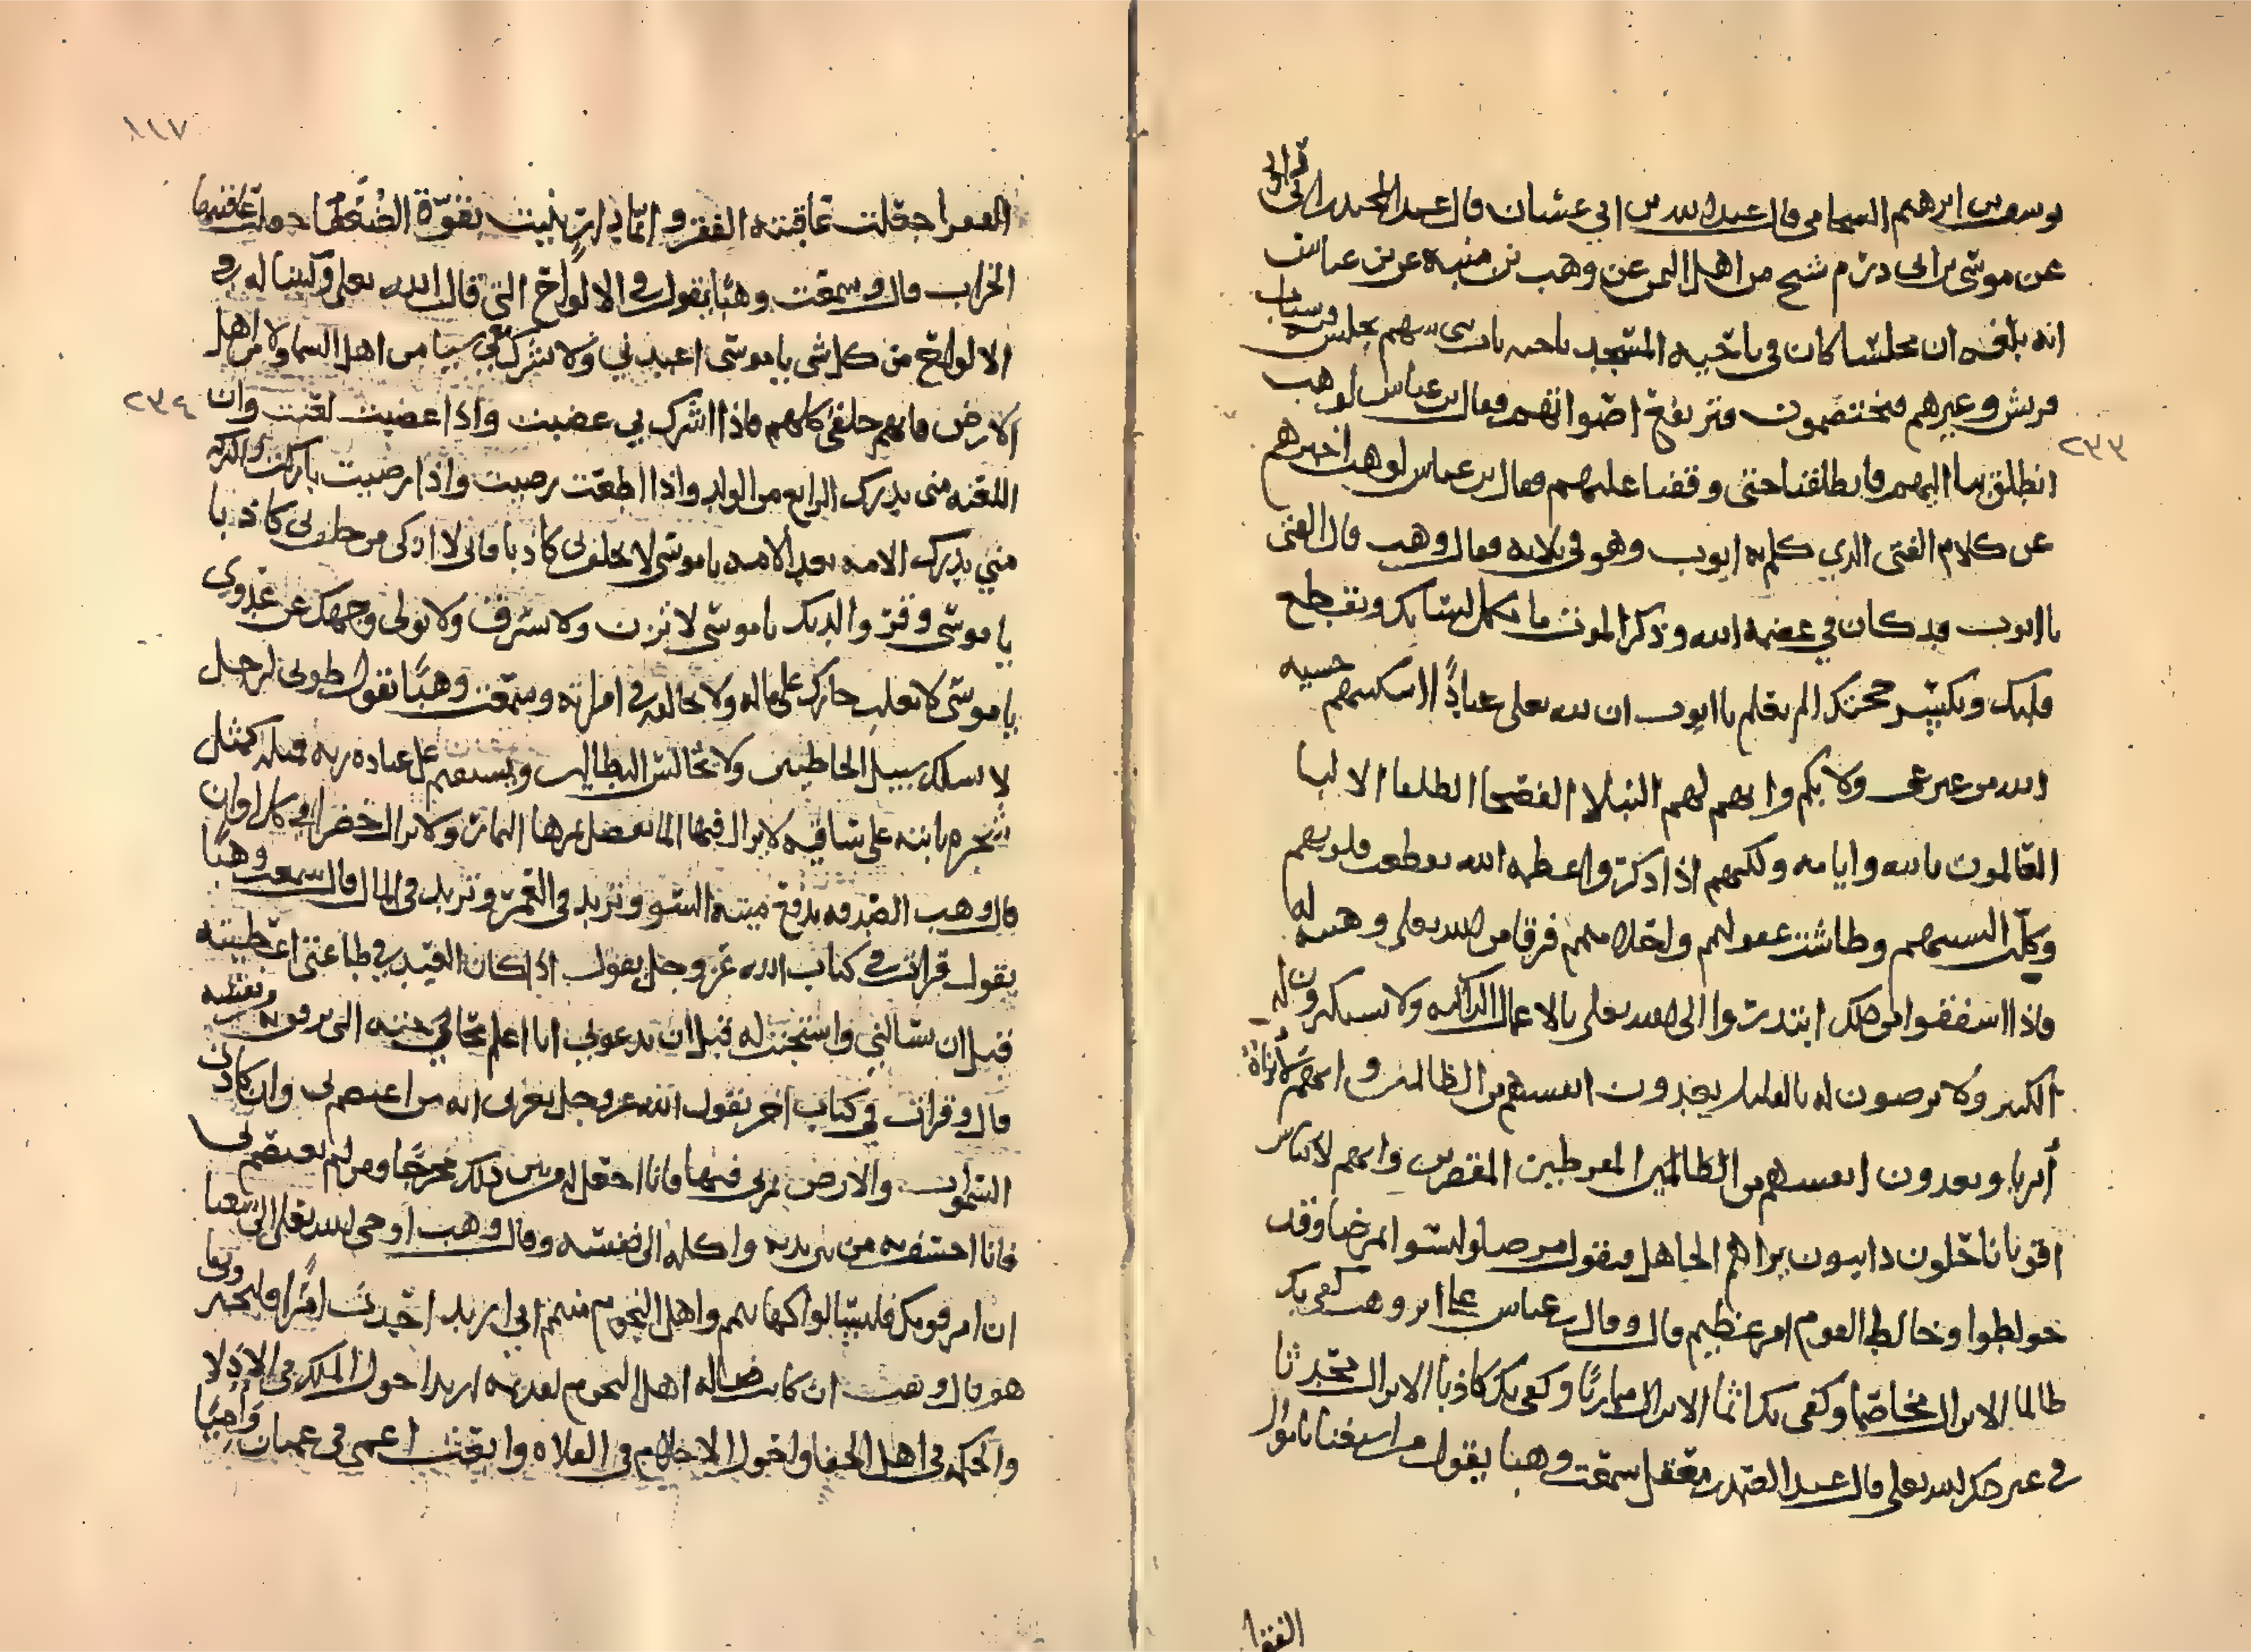 يوسف بن ابرهيم السجامي قال عبد الله بن ابي غسان قال عبد المجيد بن ابي رواد
عن موسى بن ابي درم شيخ من اهل اليمن عن وهب بن منبه عن بن عباس
انه بلغه ان مجلسا كان في ناحيه المسجد ناحيه باب بني سهم يجلس فيه ناس
قريش وغيرهم فيختصمون فترتفع اصواتهم فقال ابن عباس لوهب
انطلق بنا اليهم فانطلقنا حتى وقفنا عليهم فقال بن عباس لوهب اخبرهم
٢٣٣
عن كلام الفتى الذي كلم به ايوب وهو في بلائه فقال وهب قال الفتى
يا ايوب قد كان في عظمه الله وذكر الموت ما يكل لسانك ويقطع
قلبك ويكسر حجتك الم تعلم يا ايوب ان لله تعلى عبادا اسكتتهم خشيه
الله من غير عي ولا بكم وانهم لهم النبلا الفصحا الطلقا الالبا
العالمون بالله وايامه ولكنهم اذا ذكروا عظمه الله تقطعت قلوبهم
وكلت السنتهم وطاشت عقولهم واحلامهم فرقا من الله تعلى وهيبه له
فاذا استفقوا من ذلك ابتدروا الى الله تعلى بالاعمال الزاكيه ولا يستكثرون له
الكثير ولا يرضون له بالقليل يعدون انفسهم من الظالمين وانهم لانزاة
أبرا ويعدون انفسهم من الظالمين المفرطين المقصرين وانهم لاكياس
اقويا ناحلون دايبون يراهم الجاهل فيقول مرضى وليسوا بمرضا وقد
خولطوا وخالط القوم امر عظيم قال وقال بن عباس علي اثر وهب كفى بك
ظالما الا تزال مخاصما وكفى بك اثما الا تزال مماريا وكفى بك كاذبا الا تزال محدثا
في غير ذكر الله تعلى قال عبد الصمد بن معقل سمعت وهبا يقول من استغنا باموال
الفقرا
٨١٧
الفقرا جعلت عاقبته الفقر وايما دار بنيت بقوة الضعفا جعلت عاقبتها
الخراب قال وسمعت وهبا يقول في الالواح التي قال الله تعلى وكتبنا له في
الالواح من كل شي يا موسى اعبدني ولا تشرك بي شيا من اهل السما ولا من اهل
الارض فانهم خلقي كلهم فاذا اشرك بي غضبت واذا غضبت لعنت وان
٢٣٤
اللعنه مني تدرك الرابع من الولد واذا اطعت رضيت واذا رضيت باركت والبركه
مني تدرك الامه بعد الامه يا موسى لا تحلف بي كاذبا فاني لا ازكي من حلف بي كاذبا
يا موسى وقر والديك يا موسى لا تزن ولا تسرق ولا تولى وجهك عن عدوي
يا موسى لا تغلب جارك على ماله ولا تخالفه في امراته وسمعت وهبا يقول طوبى لرجل
لا يسلك سبيل الخاطيين ولا يجالس البطالين ويستقيم على عباده ربه فمثله كمثل
شجره نابته على ساقيه لا يزال فيها الما يفضل ثمرها الثمار ولا يزال خضرا في كل اوان
قال وهب الصدقه تدفع ميته السو وتزيد في العمر وتزيد في المال قال سمعت وهبا
يقول قرات في كتاب الله عز وجل يقول اذا كان العبد في طاعتي اعطيته
قبل ان يسالني واستجبت له قبل ان يدعوني انا اعلم بحاجته التي ترفق به نفسه
قال وقرات في كتاب اخر يقول الله عز وجل بعزتي انه من اعتصم بي وان كادت
السموات والارض بمن فيها فانا اجعل له من بين ذلك مخرجا ومن لم يعتصم بي
فانا اخسف به من بين يديه واكله الى نفسه وقال وهب اوحى الله تعلى الى شعيا
ان امر قومك فليسالوا كهانهم واهل النجوم منهم اني اريد احدث امرا فليخبروني ما
هو قال وهب ان كانت ضاله اهل النجوم لعديمه اريد احول الملك في الاذلا
والحكمه في اهل الجفا واحول الاحلام في الفلاه وابعث اعمى في عميان واميا